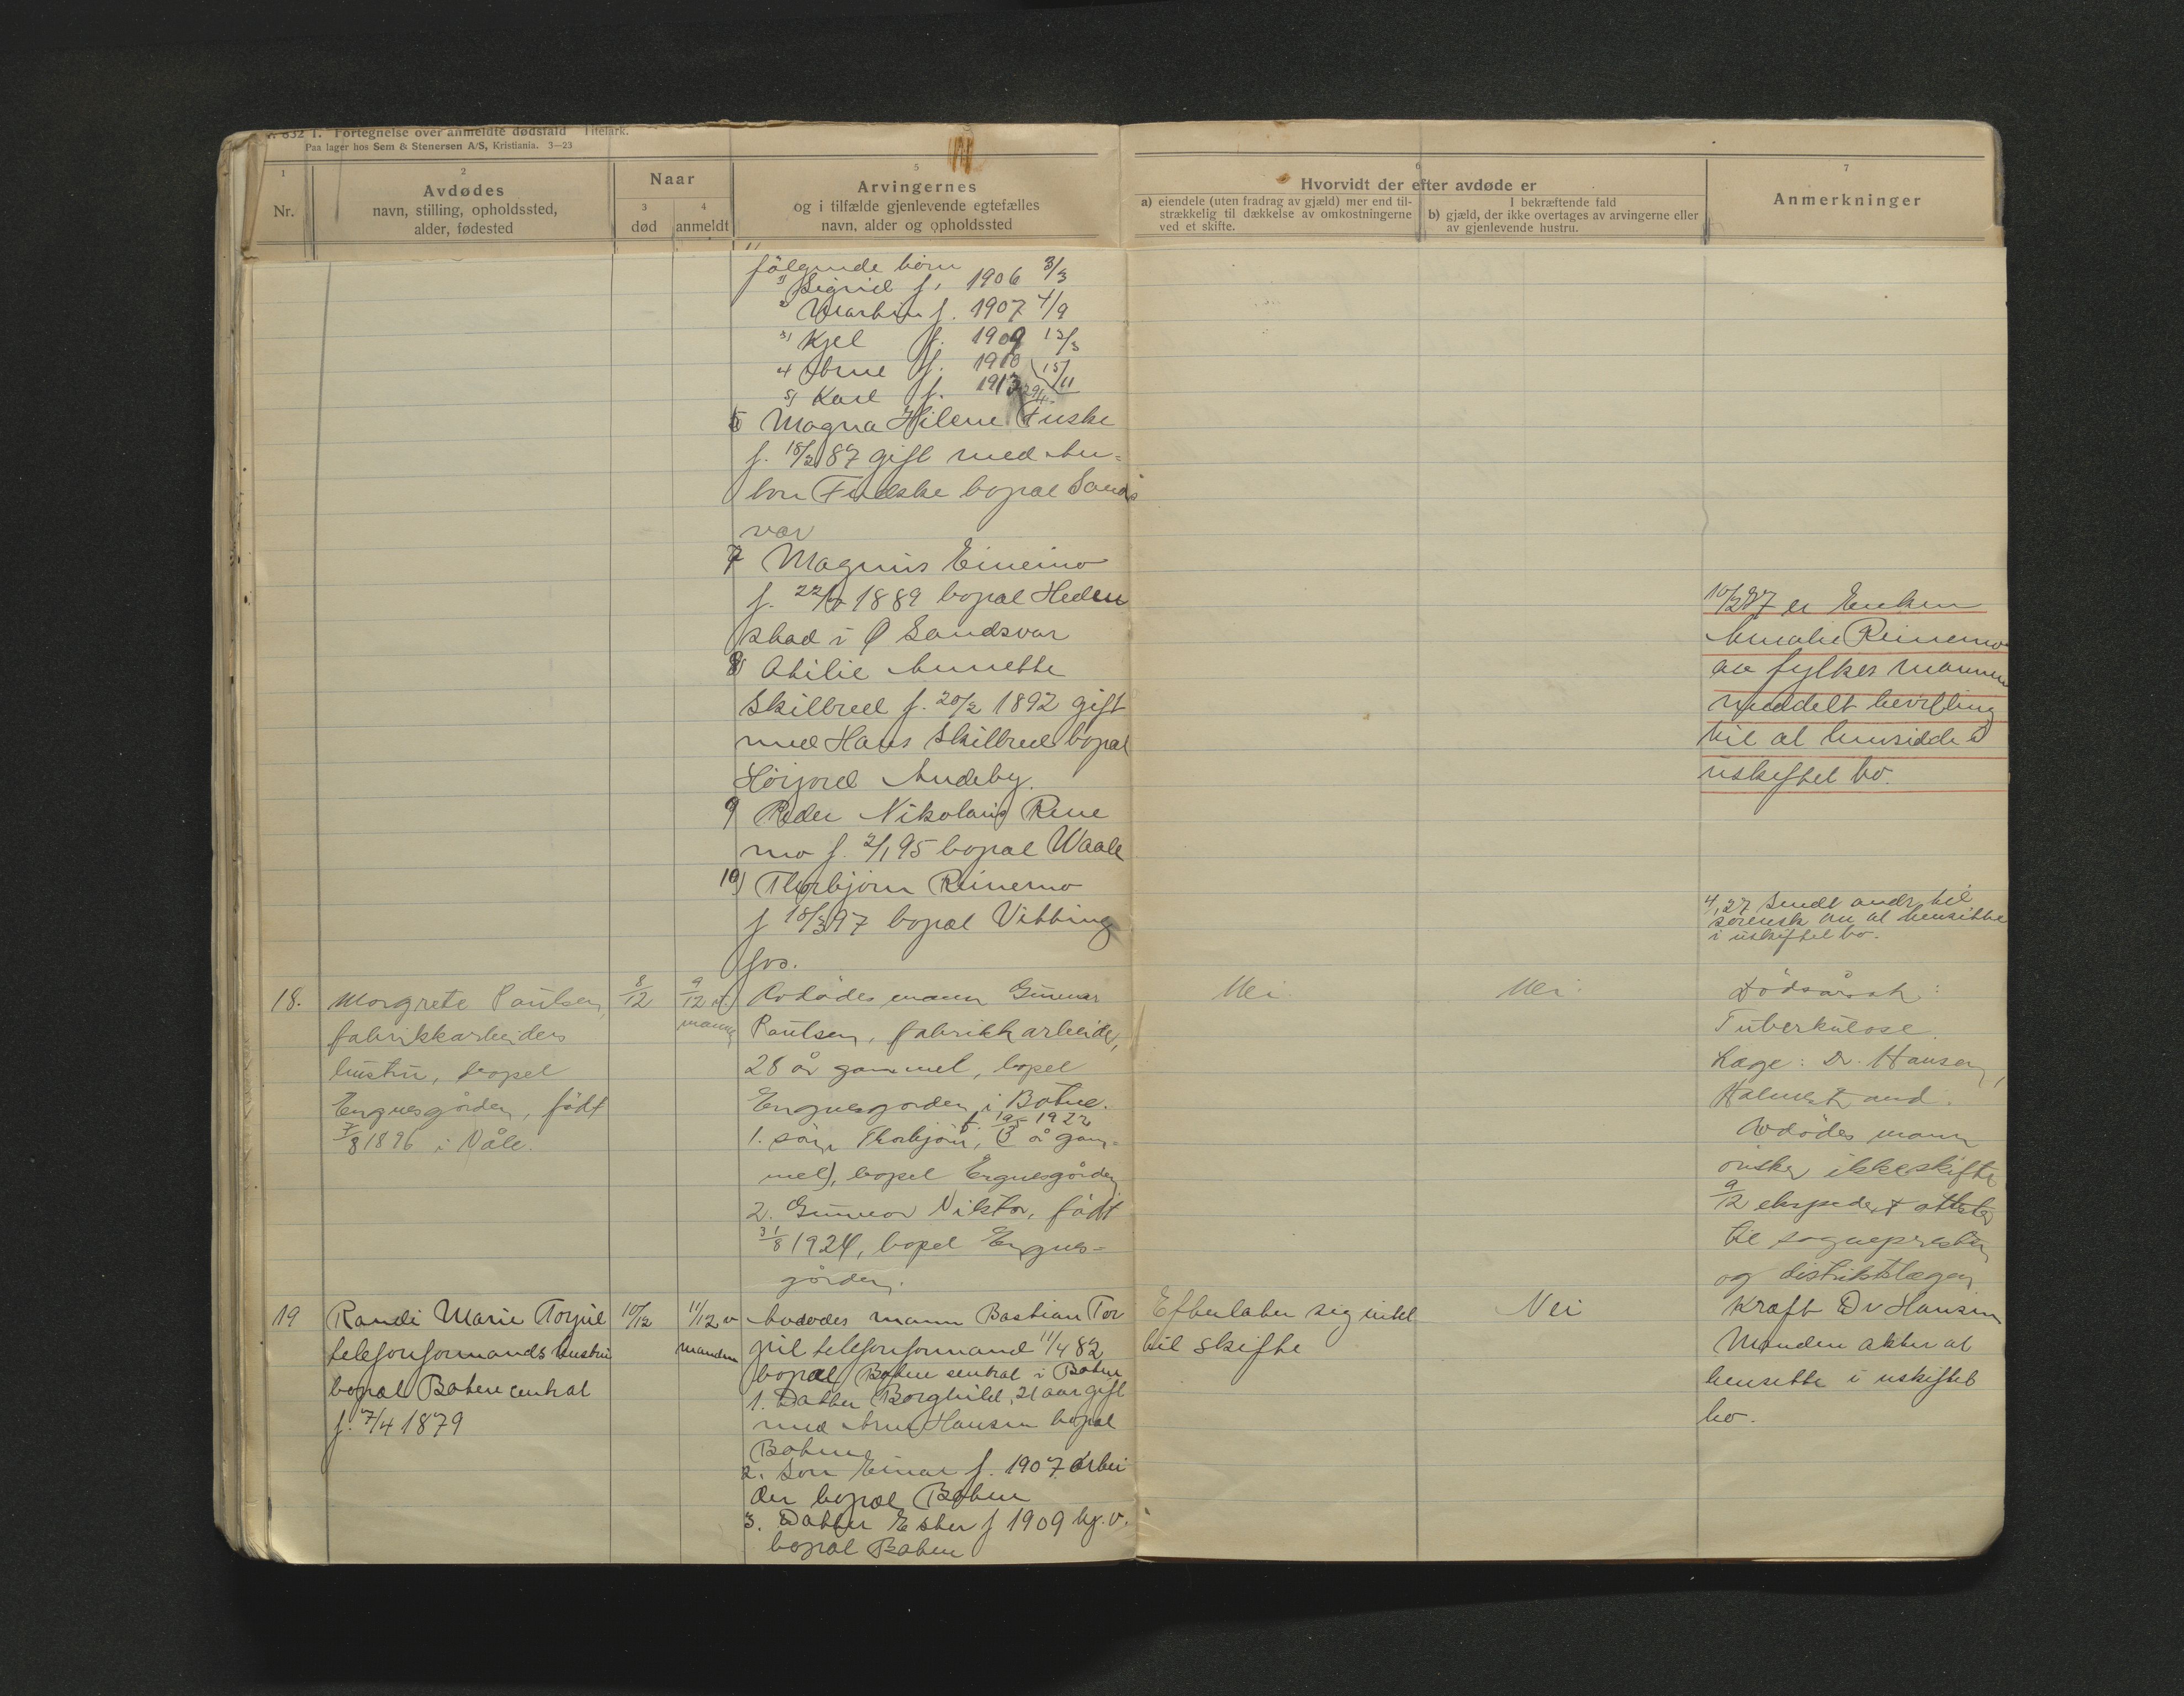 832 1. Fortegnelse over anmeldte dødsfald Titelark.
Paa lager hos Sem & Stenersen A/S, Kristiania. 3—23
1
Nr.
2
Avdødes
navn, stilling, opholdssted,
alder, fødested
Naar
3
død
4
anmeldt
5
Arvingernes
og i tilfælde gjenlevende egtefælles
navn, alder og opholdssted
6
Hvorvidt der efter avdøde er
a) eiendele (uten fradrag av gjæld) mer end til-
strækkelig til dækkelse av omkostningerne
ved et skifte.
I bekræftende fald
b) gjæld, der ikke overtages av arvingerne eller
av gjenlevende hustru.
7
Anmerkninger
følgende børn
1) Sigrid f. 1906 3/3
2) f. 1907 4/9
3) Kjel f. 1909 13/3
4 Arne f. 1910 15/11
5) Karl f. 1913
Magna Hilene Fuske
f. 18/2 87 gift med An=
ton bopæl Sands
vær
7 Magnus
f. 1889 bopæl Heden
stad i Ø Sandsvær
8) Otilie Annette
Skilbred f. 20/2 1892 gift
med Hans Skilbred bopæl
Andeby.
9) Peder Nikolaus Rene
mo f. 2/1 95 bopæl Waale
10) Thorbjørn Reinemo
f 18/3 97 bopæl Vitting
fos.
10/2 27 er Enken
Amalie Reinemo
av fylkes mannen
meddelt bevilling
til at hensidde i
uskiftet bo.
4/1 27 Sendt andr. til
sorensk om at hensitte
i uskiftet bo.
18.
Margrete Paulsen,
fabrikkarbeiders
hustru, bopel
Engnesgården, født
7/8 1896 i Våle.
8/12
9/12 af
mannen
Avdødes mann Gunnar
Paulsen, fabrikkarbeider,
28 år gammel, bopel
Engnesgården i Botne.
f. 19/5 1922
1. søn Thorbjørn, (3 år gam=
mel), bopel Engnesgården
2. Gunnar Viktor, født
31/8 1924, bopel Engnes-
gården.
Nei.
Nei.
Dødsårsak:
Tuberkulose.
Læge: Dr. Hansen,
Holmestrand.
Avdødes mann
ønsker ikke skifte
9/12 ekspedert attester
til sognepresten
og distriktslægen
19
Randi Marie Torjul
telefonformands hustru
bopæl Botne central
f. 7/4 1879
10/12
11/12 v
manden
Avdødes mann Bastian Tor
jul telefonformand 11/4 82
bopæl Botne central i Botne
1. Datter Borghild, 21 aar gift
med Arne Hansen bopæl
Botne
2. Søn Einar f. 1907 arbei
der bopæl Botne
3. Datter Ester f 1909 hj.v.
bopæl Botne
Efterlater sig intet
til skifte
Nei
Kræft Dr Hansen
Manden akter at
hensette i uskiftet
bo.